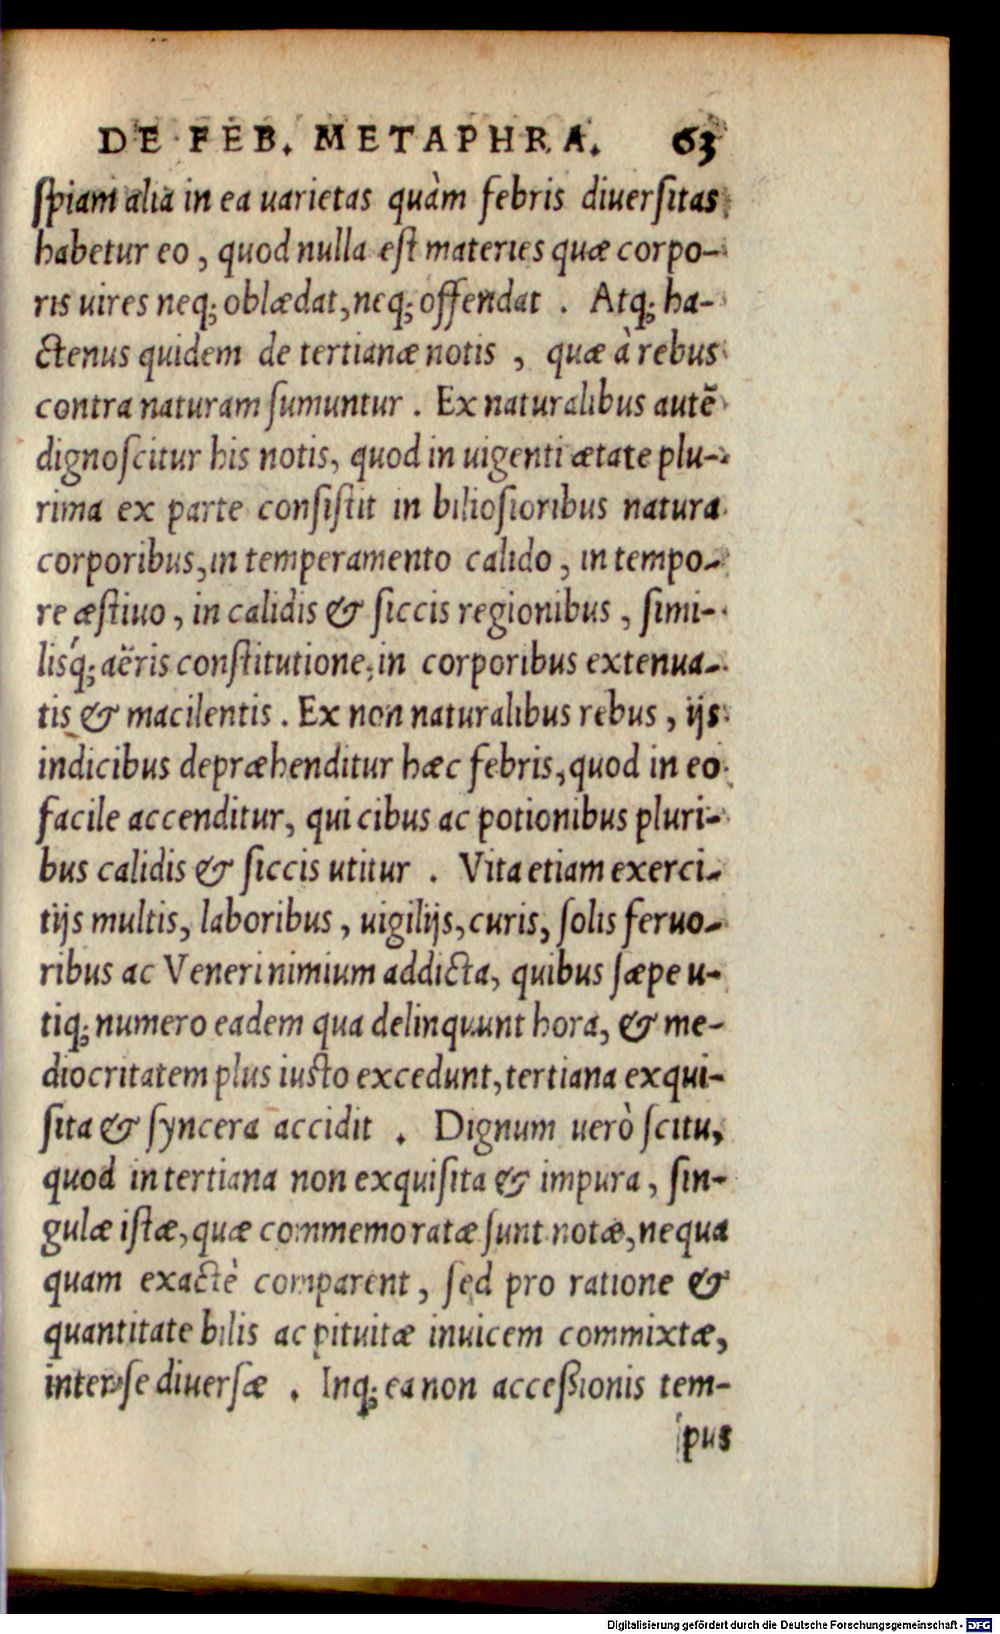 DE FEB. METAPHRA. 63
ſpiam alia in ea uarietas quàm febris diuerſitas
habetur eo, quod nulla eſt materies quæ corpo-
ris uires neq; oblædat, neq; offendat. Atq; ha-
ctenus quidem de tertianæ notis, quæ à rebus
contra naturam ſumuntur. Ex naturalibus autẽ
dignoſcitur his notis, quod in uigenti ætate plu-
rima ex parte conſiſtit in bilioſioribus natura
corporibus, in temperamento calido, in tempo-
re æſtiuo, in calidis & ſiccis regionibus, ſimi-
lisq́; aëris conſtitutione, in corporibus extenua-
tis & macilentis. Ex non naturalibus rebus, ijs
indicibus depræhenditur hæc febris, quod in eo
facile accenditur, qui cibus ac potionibus pluri-
bus calidis & ſiccis utitur. Vita etiam exerci-
tijs multis, laboribus, uigilijs, curis, ſolis feruo-
ribus ac Veneri nimium addicta, quibus ſæpe u-
tiq; numero eadem qua delinquunt hora, & me-
diocritatem plus iuſto excedunt, tertiana exqui-
ſita & ſyncera accidit. Dignum uerò ſcitu,
quod in tertiana non exquiſita & impura, ſin-
gulæ iſtæ, quæ commemoratæ ſunt notæ, nequa
quam exactè comparent, ſed pro ratione &
quantitate bilis ac pituitæ inuicem commixtæ,
inter ſe diuerſæ. Inq; ea non acceßionis tem-
pus
Digitalisierung gefördert durch die Deutsche Forschungsgemeinschaft - DFG